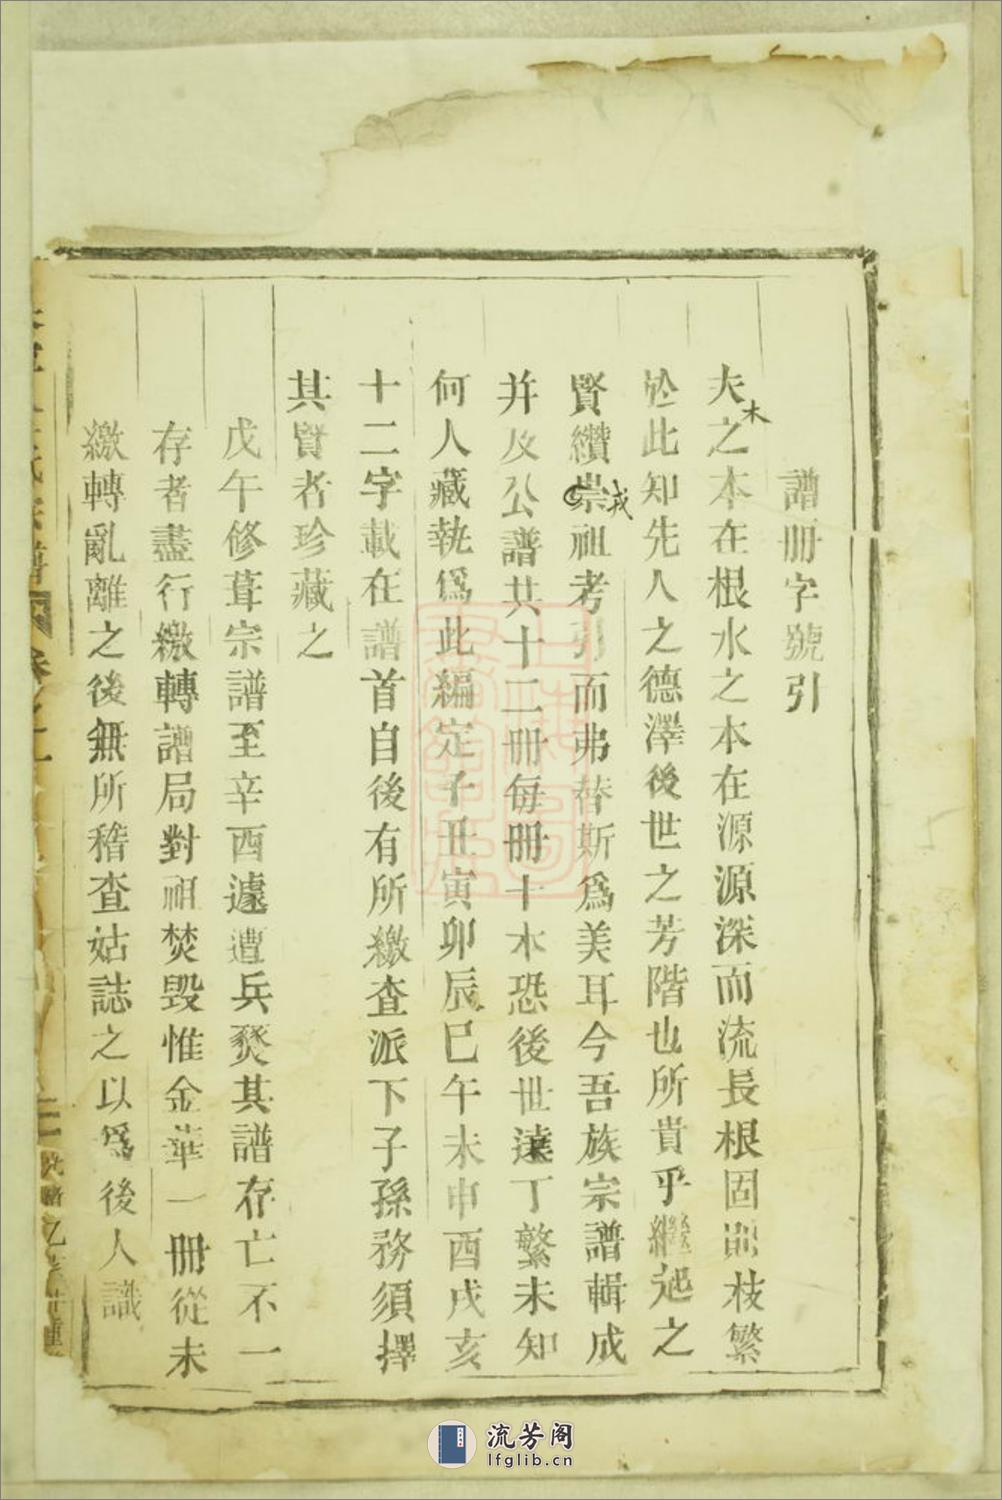 譜冊字號引
夫木之本在根水之本在源源深而流長根固而枝繁
於此知先人之德澤後世之芳階也所貴乎繼起之
賢纘崇戎祖考引而弗替斯爲美耳今吾族宗譜輯成
并及公譜共十二冊每冊十本恐後世遠丁繁未知
何人藏執爲此編定子丑寅卯辰巳午未申酉戌亥
十二字載在譜首自後有所繳查派下子孫務須擇
其賢者珍藏之
戊午修葺宗譜至辛酉遽遭兵燹其譜存亡不一
存者盡行繳轉譜局對祖焚毀惟金華一冊從未
繳轉亂離之後無所稽查姑誌之以爲後人識
氏宗譜 卷之
流芳阁
lfglib.cn